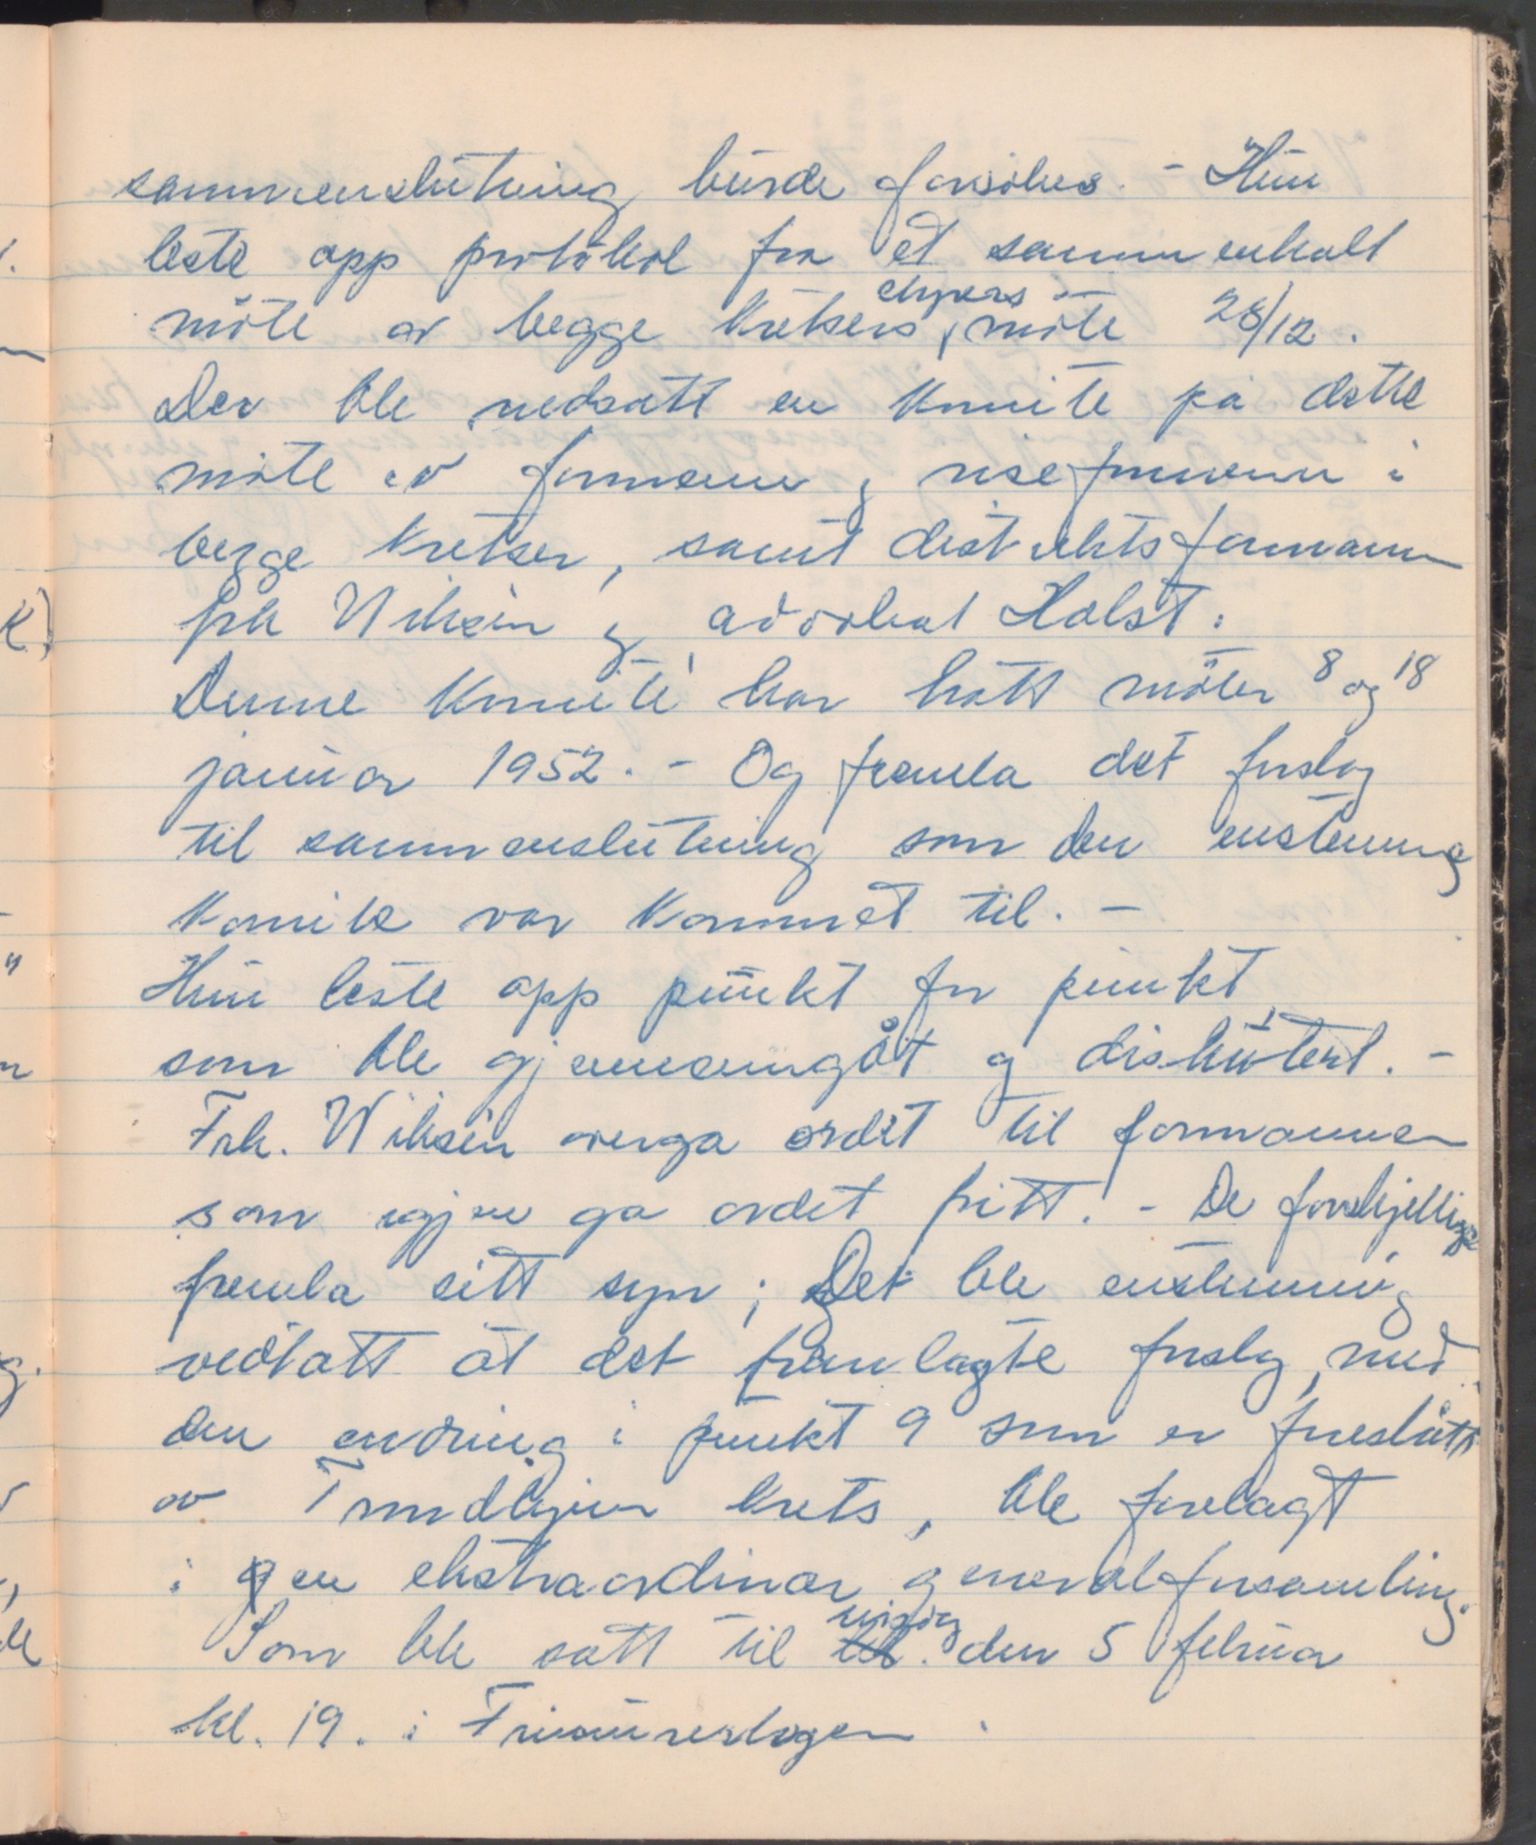 sammenslutning burde forsökes. - Hun
leste opp protokol fra et sammenkalt
möte av begge kretsers styrers möte 28/12.
Der ble nedsatt en komite på dette
möte av formenn og viseformenn i
begge kretser, samt distriktsformann
frk Wiksén og advokat Holst.
Denne komité har hatt möter 8 og 18
januar 1952. - Og fremla det forslag
til sammenslutning som den enstemmig
komite var kommet til. -
Hun leste opp punkt for punkt
som ble gjennemgåt og diskutert. -
Frk. Wiksén overga ordet til formannen
som igjen ga ordet fritt. - De forskjellige
fremla sitt syn; Det ble enstemmig
vedtatt at det fremlagte forslag, med
den endring i punkt 9 som er foreslått
av Trondhjem krets, ble forelagt
i en ekstraordinær generalforsamling.
Som ble satt til tirsdag den 5 februar
kl. 19. i Frimurerlogen.